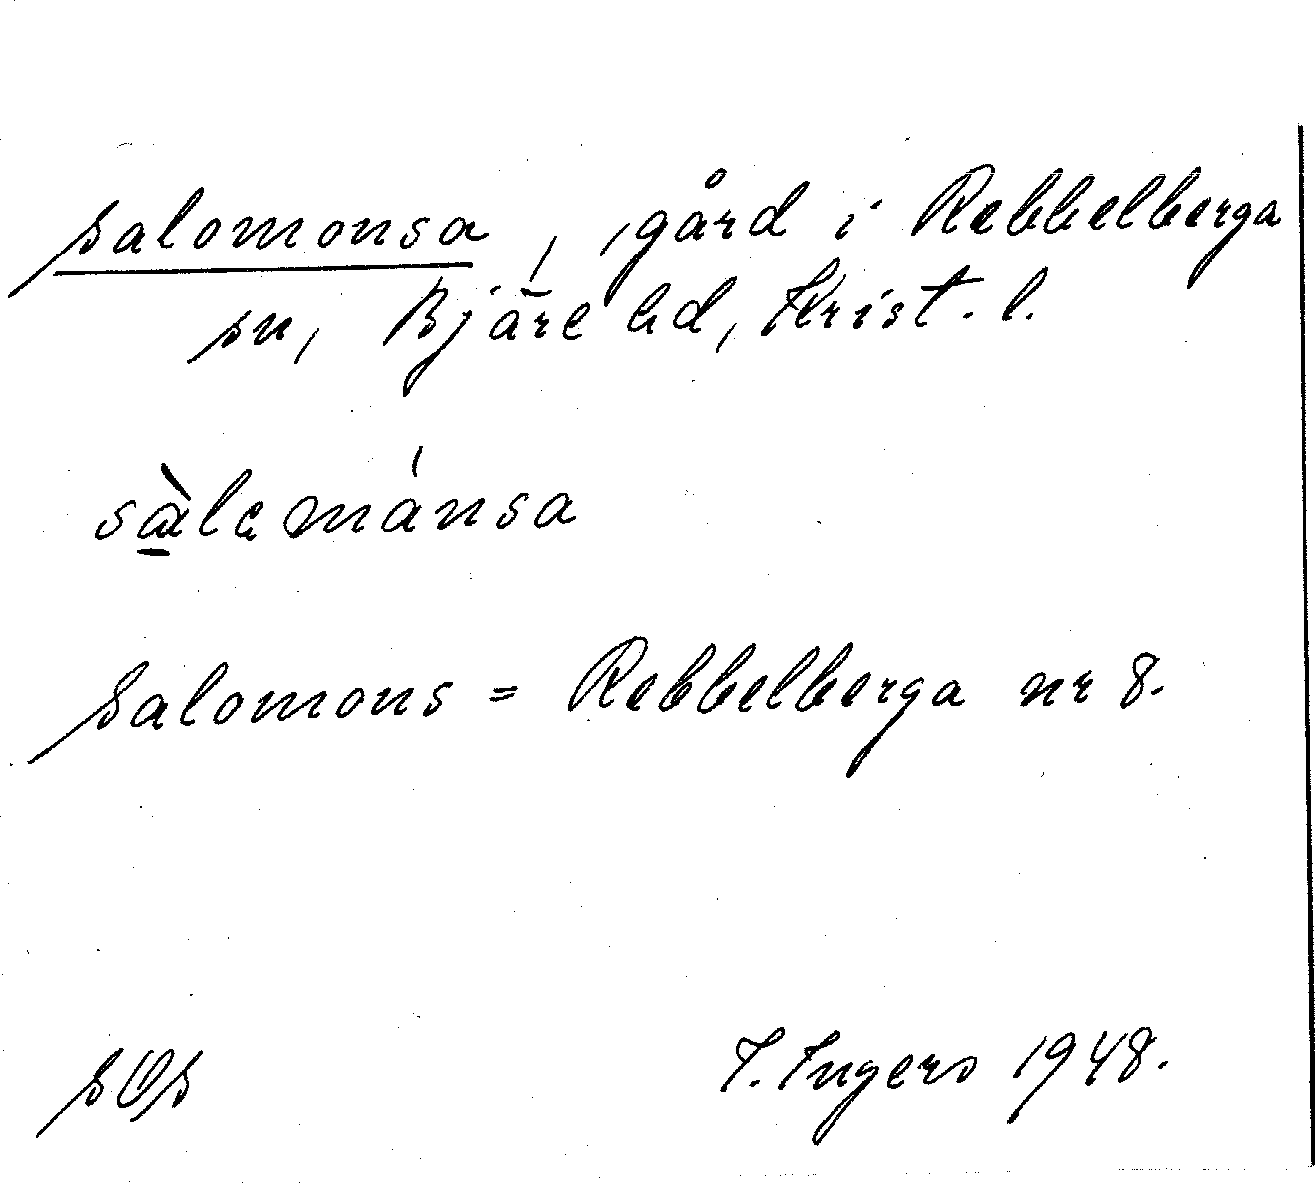 Salomonsa, gård i Rebbelberga
sn, Bjäre hd, Krist. l.
sàlemánsa
Salomons = Rebbelberga nr 8.
SOS I. Ingers 1948.